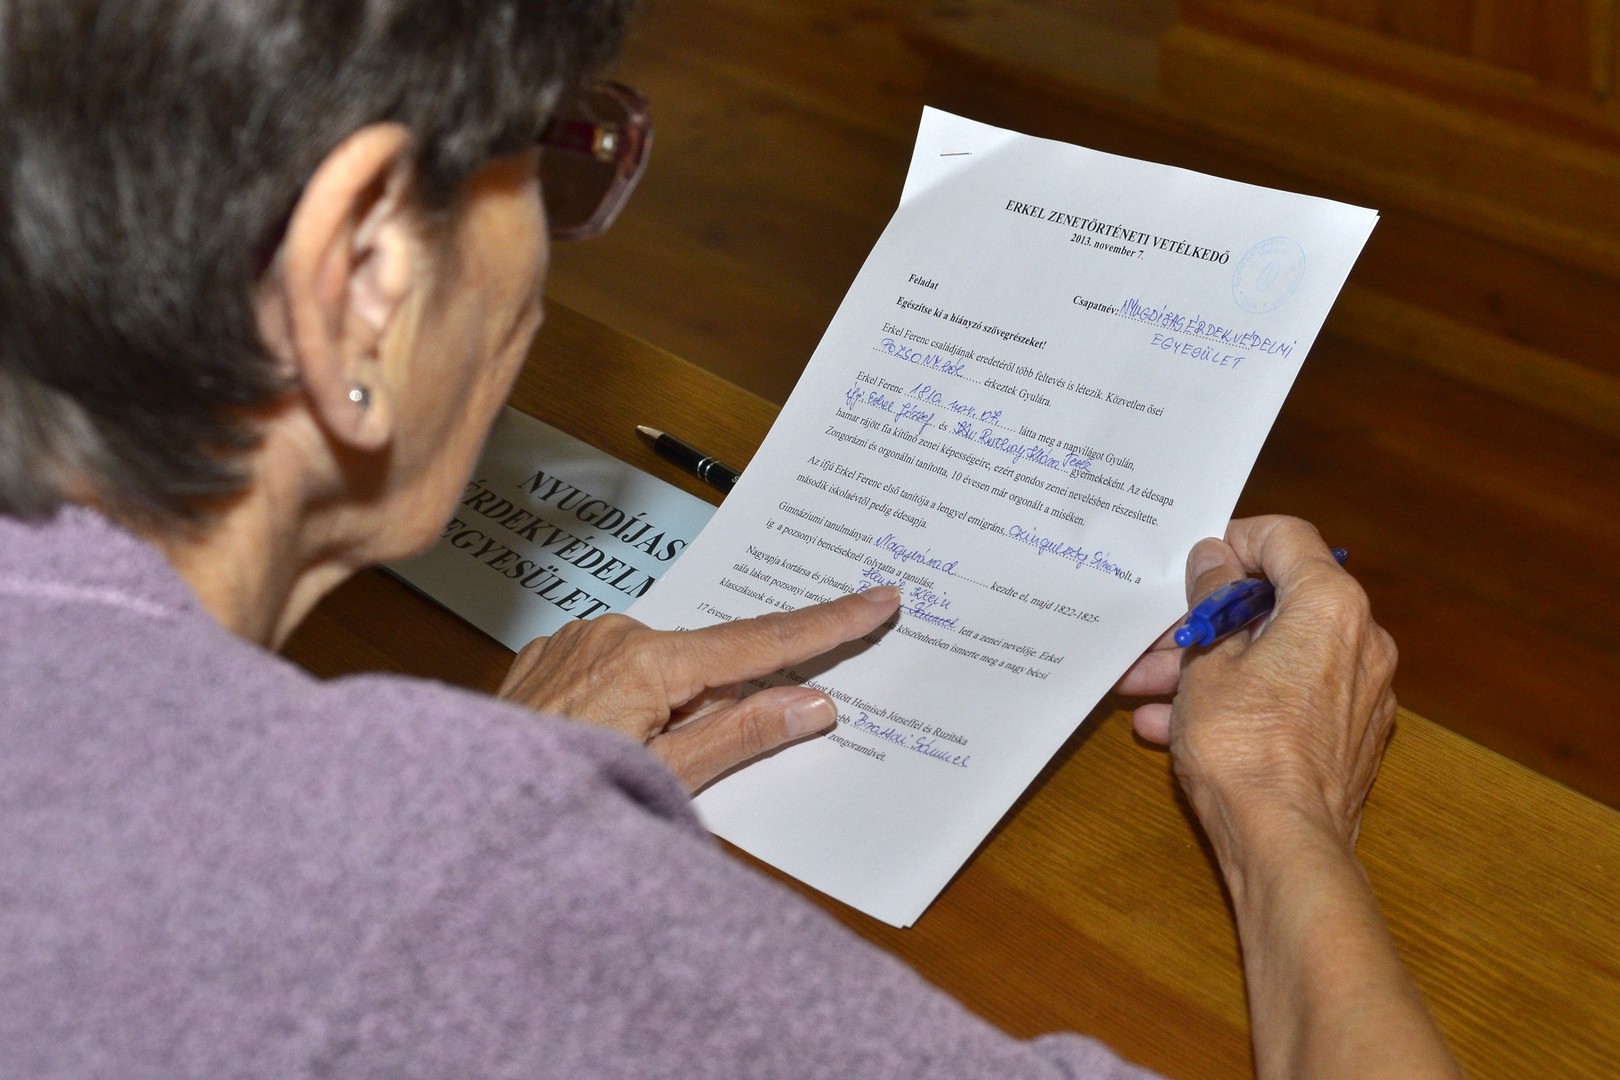 ERKEL ZENETÖRTÉNETI VETÉLKEDŐ
2013. november 7.
Feladat
Csapatnév: NYUGDÍJAS ÉRDEKVÉDELMI
EGYESÜLET
Egészítse ki a hiányzó szövegrészeket!
Erkel Ferenc családjának eredetéről több feltevés is létezik. Közvetlen ősei
POZSONYból érkeztek Gyulára.
Erkel Ferenc 1810. nov. 07. látta meg a napvilágot Gyulán,
ifj. Erkel József és Klára Teréz gyermekeként. Az édesapa
hamar rájött fia kitűnő zenei képességeire, ezért gondos zenei nevelésben részesítette.
Zongorázni és orgonálni tanította, 10 évesen már orgonált a miséken.
Az ifjú Erkel Ferenc első tanítója a lengyel emigráns, volt, a
második iskolaévtől pedig édesapja.
Gimnáziumi tanulmányait Nagyvárad kezdte el, majd 1822-1825-
ig a pozsonyi bencéseknél folytatta a tanulást.
Nagyapja kortársa és jóbarátja, Klein
nála lakott pozsonyi lett a zenei nevelője. Erkel
klasszikusok és a köszönhetően ismerte meg a nagy bécsi
17 évesen
Barátságot kötött Heinisch Józseffel és Ruzitska
Brassai Sámuel
zongoraművét.
NYUGDÍJAS
ÉRDEKVÉDELM
EGYESÜLET